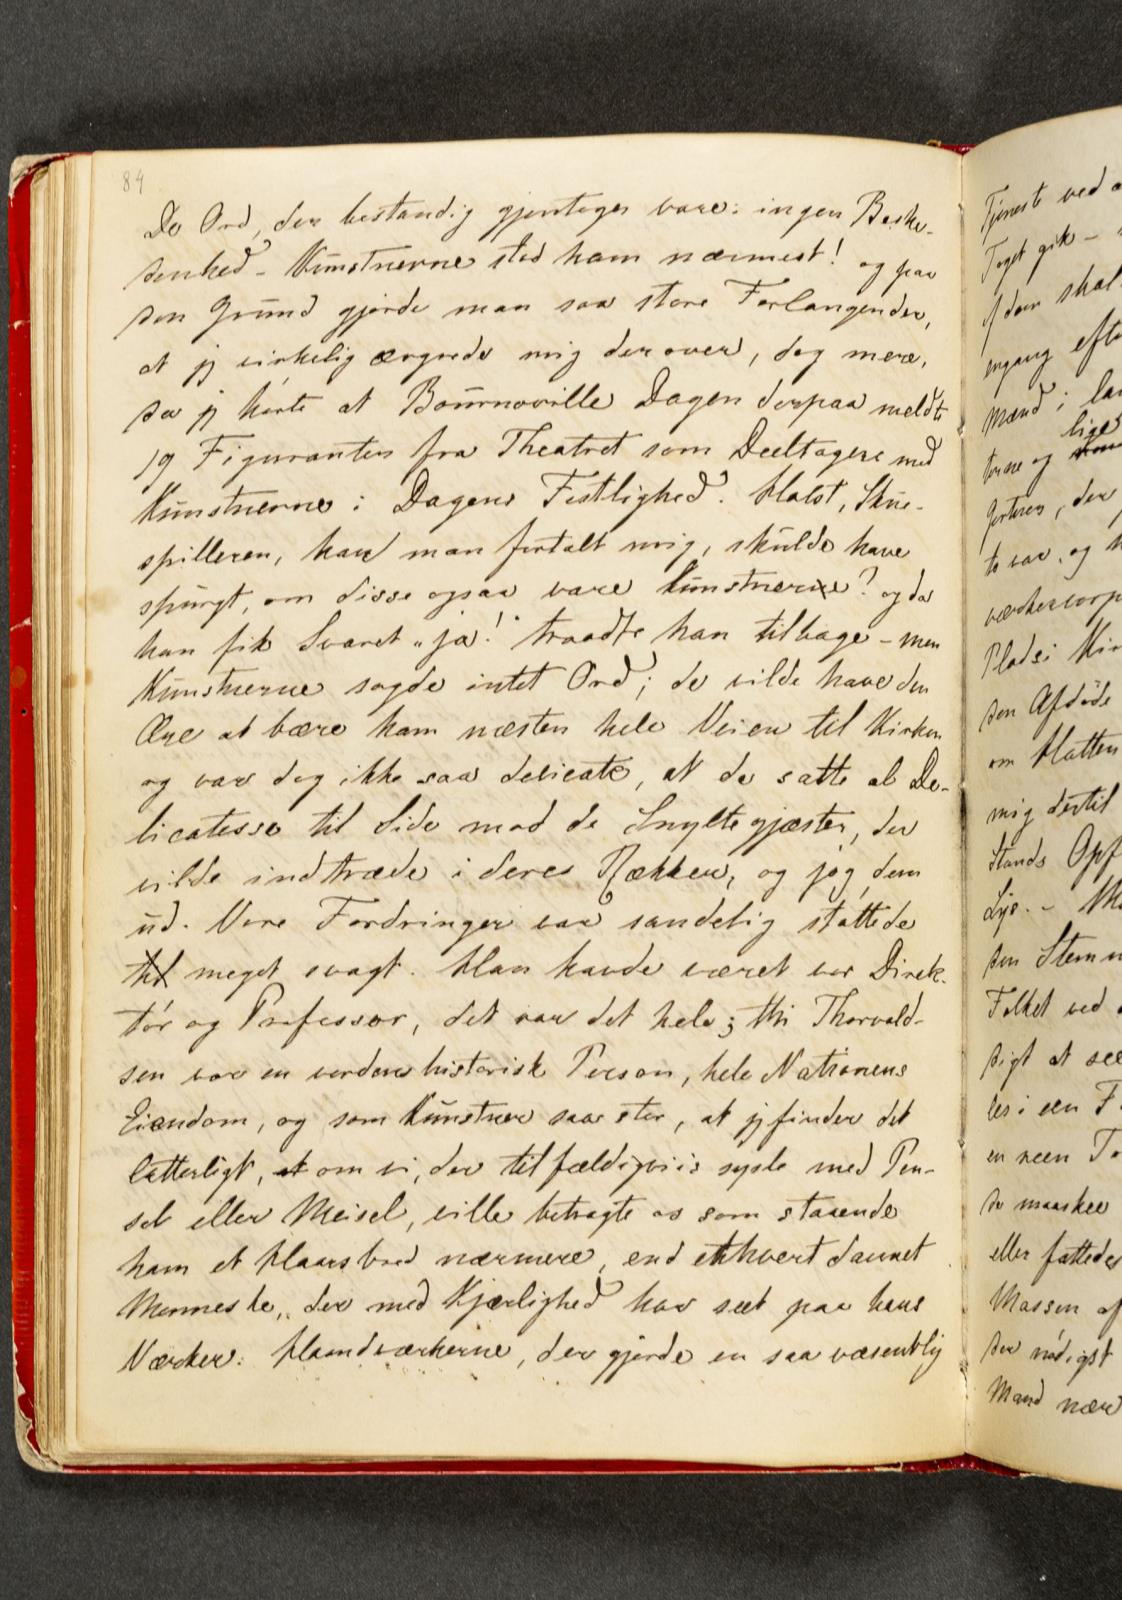 84
De Ord, der bestandig gjentoges vare: ingen Beske-
denhed – Kunstnerne stod ham nærmest! og paa
den Grund gjorde man saa store Forlangender,
at jeg virkelig ærgrede mig derover, dog mere,
da jeg hørte at Bournonville Dagen derpaa meldte
19 Figuranter fra Theatret som Deeltagere med
Kunstnerne i Dagens Festlighed. Holst, Skue-
spilleren, har man fortalt mig, skulde have
spurgt, om disse ogsaa vare Kunstnere? og da
han fik Svaret „ja!“ traadte han tilbage – men
Kunstnerne sagde intet Ord; de vilde have den
Ære at bære ham næsten hele Veien til Kirken
og var dog ikke saa delicate, at de satte al De-
licatesse til Side mod de Snyltegjæster, der
vilde indtræde i deres Rækker, og jog dem
ud. Vore Fordringer var sandelig støttede
til meget svagt. Han havde været vor Direk-
tør og Professor, det var det hele; thi Thorvald-
sen var en verdenshistorisk Person, hele Nationens
Eiendom, og som Kunstner saa stor, at jeg finder det
latterligt, at om vi, der tilfældigviis sysle med Pen-
sel eller Meisel, ville betragte os som staaende
ham et Haarsbred nærmere, end ethhvert dannet
Menneske, der med Kjærlighed har seet paa hans
Værker. Haandværkerne, der gjorde en saa væsentlig
Tjeneste ved
Toget gik –
af dem skal
engang
Mænd i
lige
terne og
der
to var, og
Plads i
den Afdøde
om Hatten
mig dertil
Stands
Lys. –
den
Folket ved
sigt at see
les i een
en neen
de maaskee
eller fattedes
Massen af
der nødigst
Mand nær